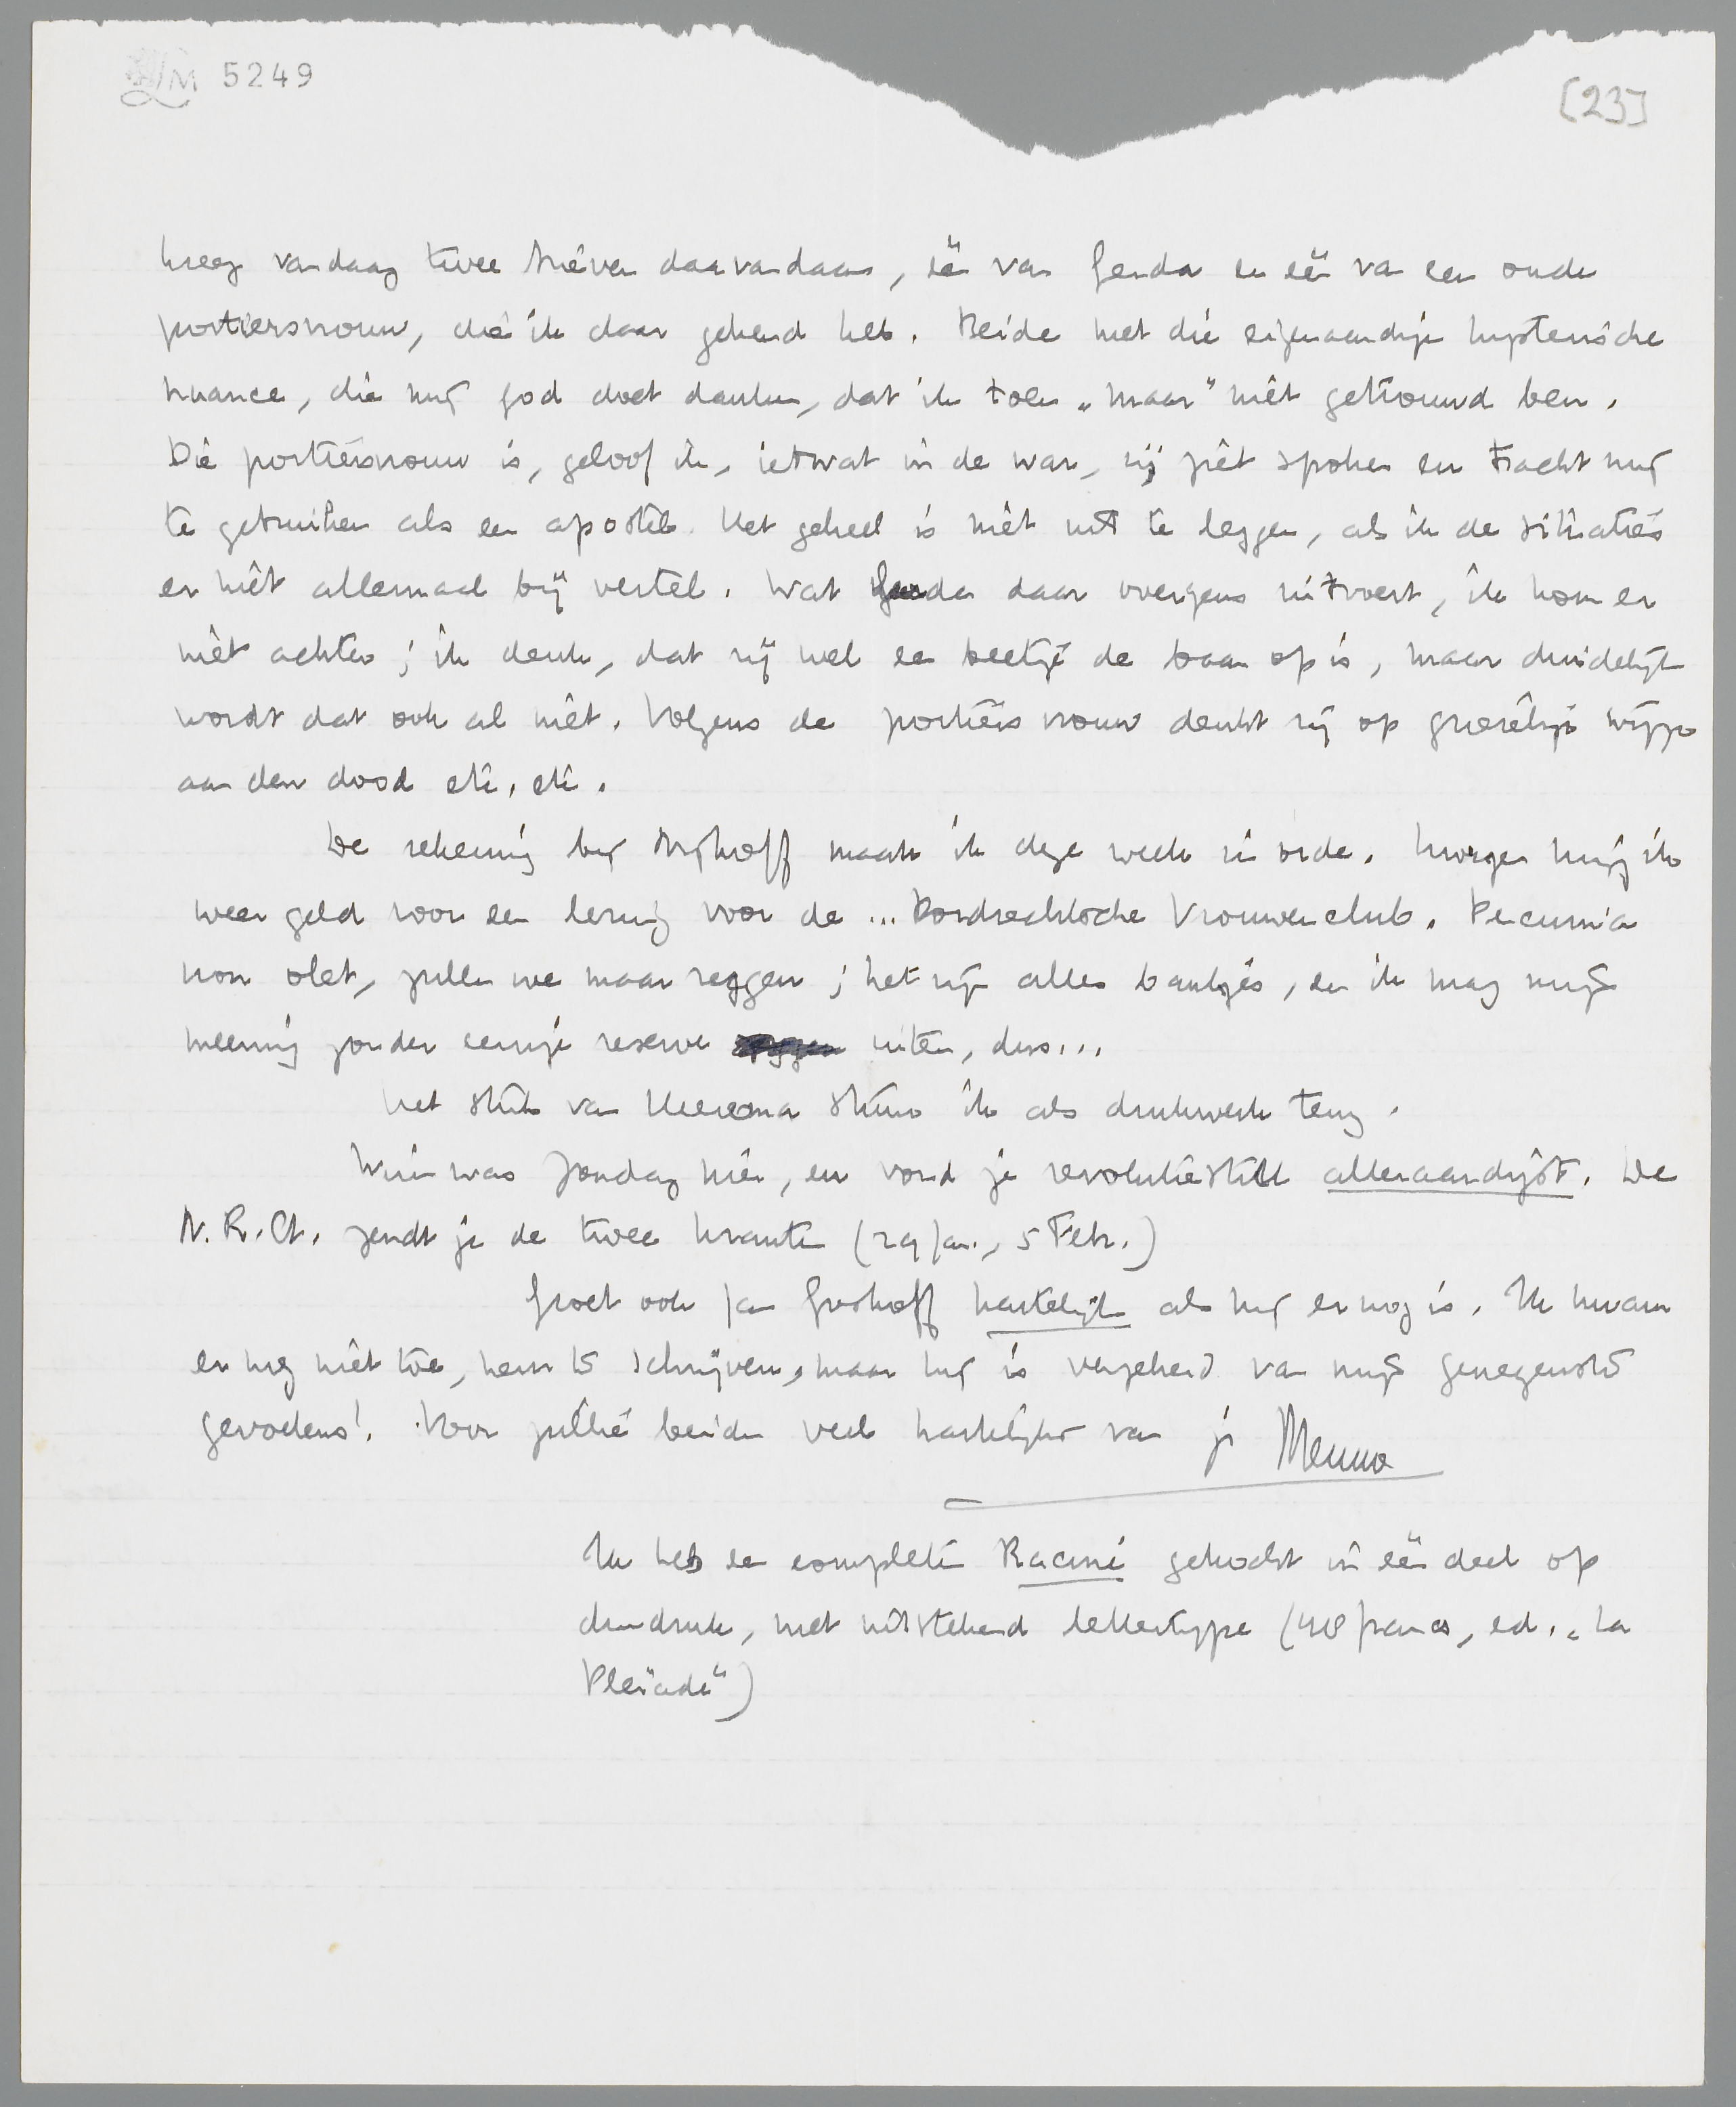 LM 5249
[23]
kreeg vandaag twee brieven daarvandaan, één van Gerda en één van een oude
portiersvrouw, die ik daar gekend heb. Beide met die eigenaardige hysterische
nuance, die mij god doet danken, dat ik toen „maar” niet getrouwd ben.
Die portiersvrouw is, geloof ik, ietwat in de war, zij ziet spoken en tracht mij
te gebruiken als een apostel. Het geheel is niet uit te leggen, als ik de situaties
er niet allemaal bij vertel. Wat Gerda daar overigens uitvoert, ik kom er
niet achter; ik denk, dat zij wel een beetje de baan op is, maar duidelijk
wordt dat ook al niet. Volgens de portiersvrouw denkt zij op griezelige wijze
aan den dood etc. etc.
De rekening bij Nijhoff maak ik deze week in orde. Morgen krijg ik
weer geld voor een lezing voor de ... Dordrechtsche Vrouwenclub. Pecunia
non olet, zullen we maar zeggen; het zijn alles bankjes, en ik mag mijn
meening zonder eenige reserve uiten, dus...
Het stuk van Heerema stuur ik als drukwerk terug.
Wim was Zondag hier, en vond je revolutiestuk alleraardigst. De
N.R.Ct. zendt je de twee kranten (29 Jan., 5 Febr.)
Groet ook Jan Greshoff hartelijk als hij er nog is. Ik kwam
er nog niet toe, hem te schrijven, maar hij is verzekerd van mijn genegenste
gevoelens! Voor jullie beiden veel hartelijks van je Menno
Ik heb een complete Racine gekocht in één deel op
dundruk, met uitstekend lettertype (48 francs, ed. „La
Pleïade”)